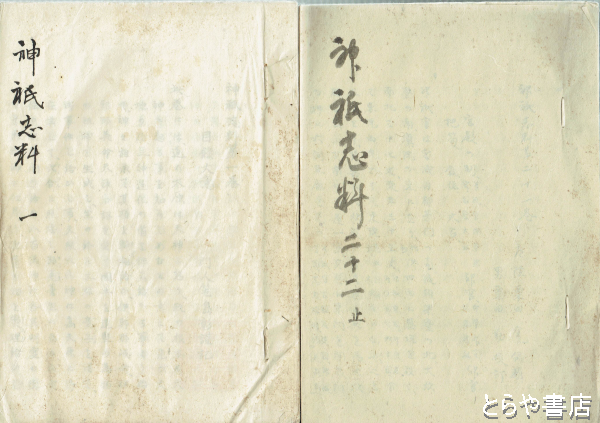 神祇志料 一
神祇志料 二十二 止
とらや書店